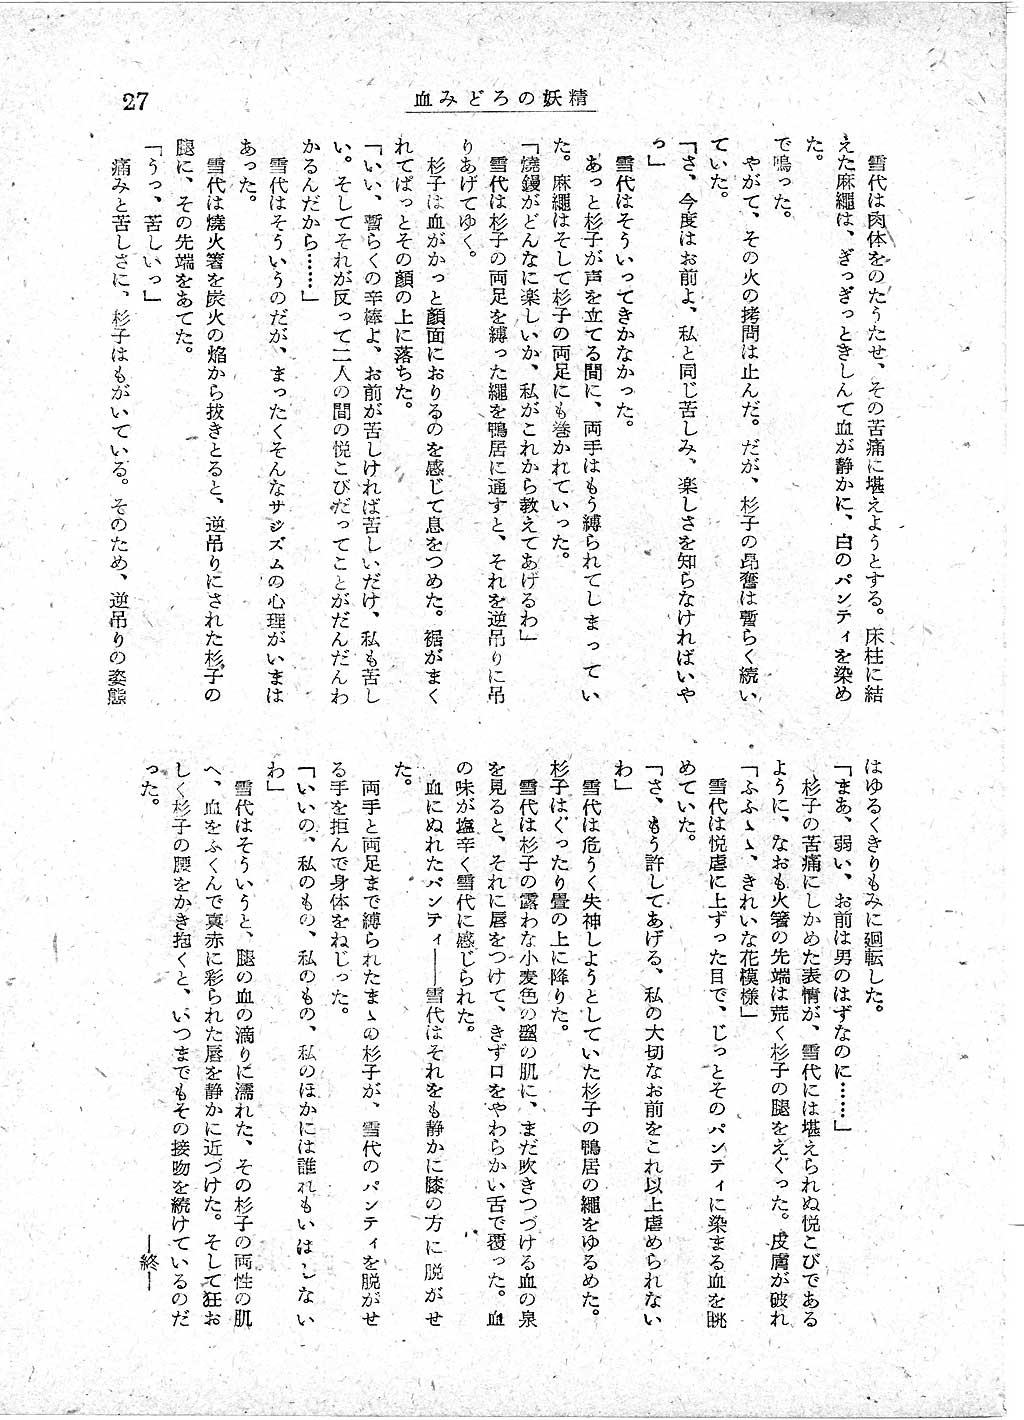 27
血みどろの妖精
雪代は肉体をのたうたせ、その苦痛に堪えようとする。床柱に結
えた麻繩は、ぎっぎっときしんて血が静かに、白のパンティを染め
た。
で鳴った。
やがて、その火の拷問は止んだ。だが、杉子の昂奮は暫らく続い
ていた。
「さ、今度はお前よ、私と同じ苦しみ、楽しさを知らなければいや
っ」
雪代はそういってきかなかった。
あっと杉子が声を立てる間に、両手はもう縛られてしまってい
た。麻繩はそして杉子の両足にも巻かれていった。
「燒鏝がどんなに楽しいか、私がこれから教えてあげるわ」
雪代は杉子の両足を縛った繩を鴨居に通すと、それを逆吊りに吊
りあげてゆく。
杉子は血がかっと顔面におりるのを感じて息をつめた。裾がまく
れてぱっとその顔の上に落ちた。
「いい、暫らくの辛棒よ、お前が苦しければ苦しいだけ、私も苦し
い。そしてそれが反って二人の間の悦こびだってことがだんだんわ
かるんだから……」
雪代はそういうのだが、まったくそんなサジズムの心理がいまは
あった。
雪代は燒火箸を炭火の焔から抜きとると、逆吊りにされた杉子の
腿に、その先端をあてた。
「うっ、苦しいっ」
痛みと苦しさに、杉子はもがいている。そのため、逆吊りの姿態
はゆるくきりもみに廻転した。
「まあ、弱い、お前は男のはずなのに……」
杉子の苦痛にしかめた表情が、雪代には堪えられぬ悦こびである
ように、なおも火箸の先端は荒く杉子の腿をえぐった。皮膚が破れ
「ふふゝゝ、きれいな花模様」
雪代は悦虐に上ずった目で、じっとそのパンティに染まる血を眺
めていた。
「さ、もう許してあげる、私の大切なお前をこれ以上虐められない
わ」
雪代は危うく失神しようとしていた杉子の鴨居の繩をゆるめた。
杉子はぐったり畳の上に降りた。
雪代は杉子の露わな小麦色の肌に、まだ吹きつづける血の泉
を見ると、それに唇をつけて、きず口をやわらかい舌で覆った。血
の味が塩辛く雪代に感じられた。
血にぬれたパンティ――雪代はそれをも静かに膝の方に脱がせ
た。
両手と両足まで縛られたまゝの杉子が、雪代のパンティを脱がせ
る手を拒んで身体をねじった。
「いいの、私のもの、私のもの、私のほかには誰れもいはしない
わ」
雪代はそういうと、腿の血の滴りに濡れた、その杉子の両性の肌
へ、血をふくんで真赤に彩られた唇を静かに近づけた。そして狂お
しく杉子の腰をかき抱くと、いつまでもその接吻を続けているのだ
った。
―終―